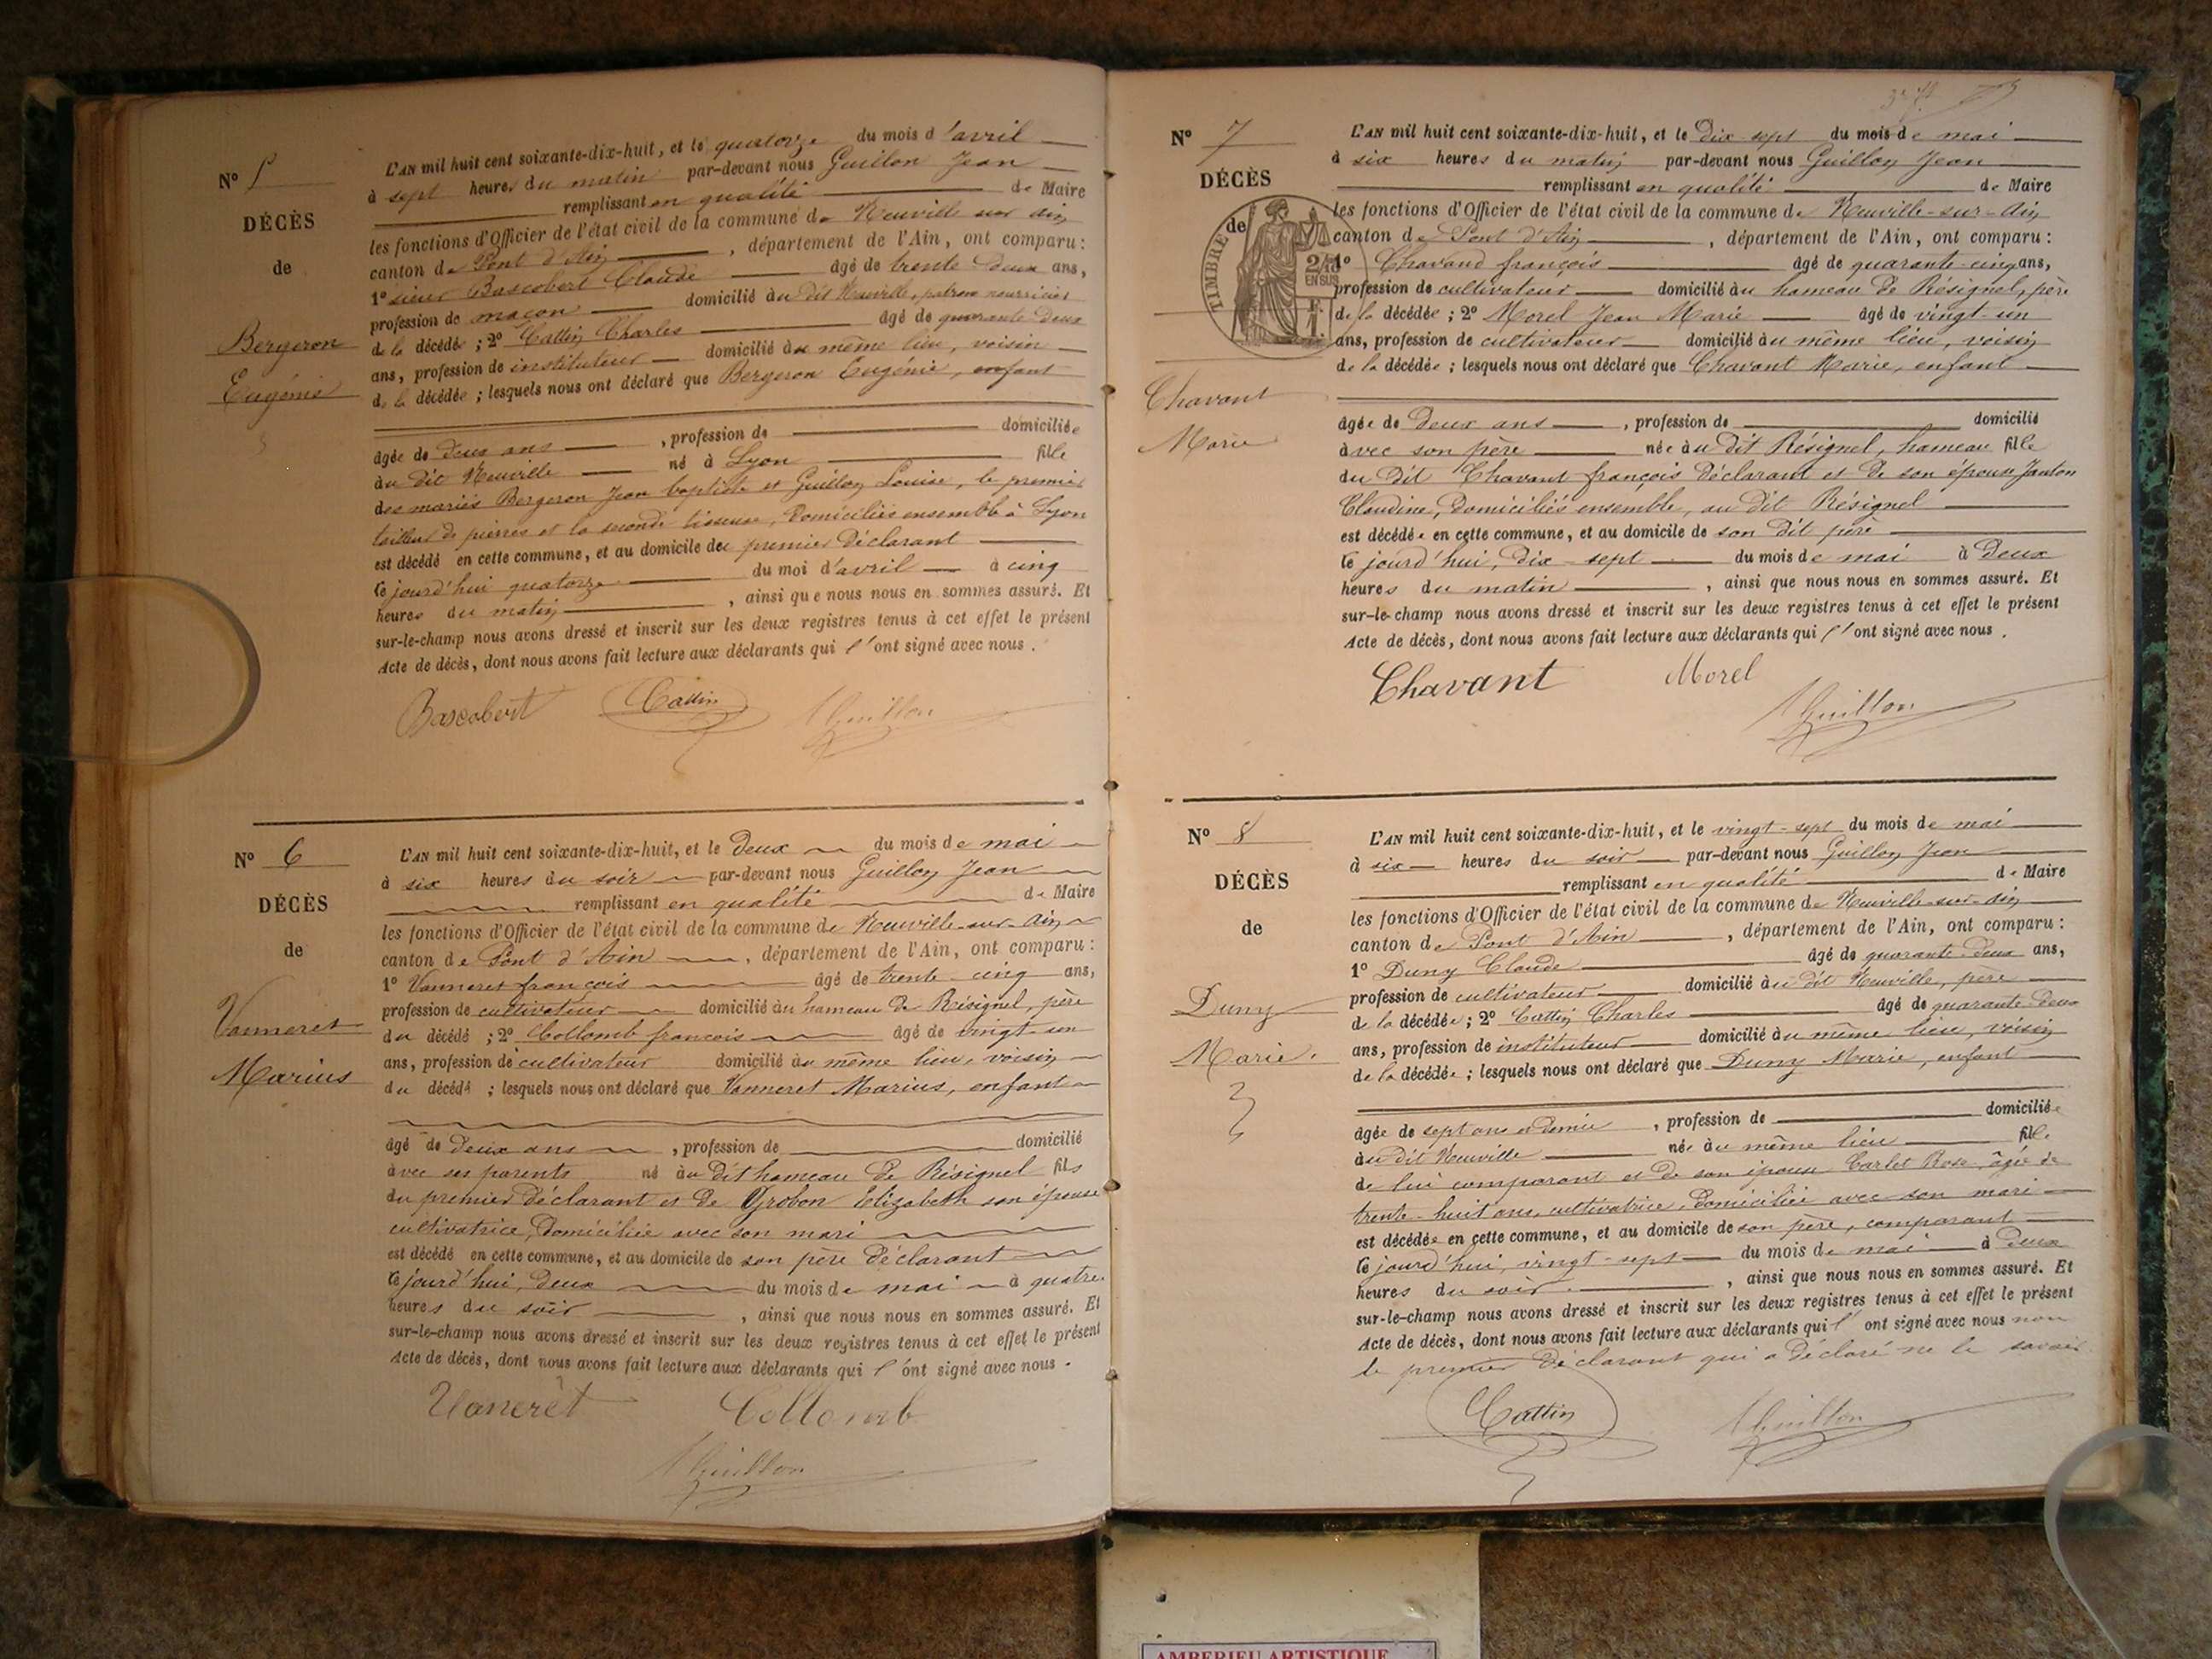 N° 5
DÉCÈS
de
Bergeron
Eugénie
L'AN mil huit cent soixante-dix-huit, et le quatorze du mois d'avril
à sept heures du matin par-devant nous Guillon Jean
remplissant en qualité de Maire
les fonctions d'Officier de l'état civil de la commune de Neuville sur Ain
canton de Pont d'Ain, département de l'Ain, ont comparu:
1° sieur Bascobert Claude âgé de trente deux ans,
profession de maçon domicilié au dit Neuville, patron nourricier
de la décédée; 2° Cattin Charles âgé de quarante deux
ans, profession de instituteur domicilié au même lieu, voisin
de la décédée; lesquels nous ont déclaré que Bergeron Eugénie, enfant
âgée de deux ans, profession de domiciliée
au dit Neuville né à Lyon fille
des mariés Bergeron Jean baptiste et Guillon Louise, le premier
tailleur de pierres et la seconde tisseuse, domiciliés ensemble à Lyon
est décédé en cette commune, et au domicile du premier déclarant
ce jourd'hui quatorze du moi d'avril à cinq
heures du matin, ainsi que nous nous en sommes assuré. Et
sur-le-champ nous avons dressé et inscrit sur les deux registres tenus à cet effet le présent
Acte de décès, dont nous avons fait lecture aux déclarants qui l'ont signé avec nous.
Bascobert Cattin Guillon
N° 6
DÉCÈS
de
Vanneret
Marius
L'AN mil huit cent soixante-dix-huit, et le deux du mois de mai
à six heures du soir par-devant nous Guillon Jean
remplissant en qualité de Maire
les fonctions d'Officier de l'état civil de la commune de Neuville-sur-Ain
canton de Pont d'Ain, département de l'Ain, ont comparu:
1° Vanneret françois âgé de trente cinq ans,
profession de cultivateur domicilié au hameau de Résignel, père
du décédé; 2° Collomb françois âgé de vingt-un
ans, profession de cultivateur domicilié au même lieu, voisin
du décédé; lesquels nous ont déclaré que Vanneret Marius, enfant
âgé de deux ans, profession de domicilié
avec ses parents né au dit hameau de Résignel fils
du premier déclarant et de Grobon Elizabeth son épouse
cultivatrice, domiciliée avec son mari
est décédé en cette commune, et au domicile de son père déclarant
ce jourd'hui, deux du mois de mai à quatre
heures du soir, ainsi que nous nous en sommes assuré. Et
sur-le-champ nous avons dressé et inscrit sur les deux registres tenus à cet effet le présent
Acte de décès, dont nous avons fait lecture aux déclarants qui l'ont signé avec nous.
Vaneret Collomb
Guillon
N° 7
DÉCÈS
de
TIMBRE
2/10
EN SUS
Chavant
Marie
L'AN mil huit cent soixante-dix-huit, et le dix-sept du mois de mai
à six heures du matin par-devant nous Guillon Jean
remplissant en qualité de Maire
les fonctions d'Officier de l'état civil de la commune de Neuville-sur-Ain
canton de Pont d'Ain, département de l'Ain, ont comparu:
1° Chavand françois âgé de quarante-cinq ans,
profession de cultivateur domicilié au hameau de Résignel, père
de la décédée; 2° Morel Jean Marie âgé de vingt-un
ans, profession de cultivateur domicilié au même lieu, voisin
de la décédée; lesquels nous ont déclaré que Chavant Marie, enfant
âgée de deux ans, profession de domicilié
avec son père née au dit Résignel, hameau fille
du dit Chavant françois déclarant et de son épouse Janton
Claudine, domiciliés ensemble, au dit Résignel
est décédée en cette commune, et au domicile de son dit père
ce jourd'hui, dix-sept du mois de mai à deux
heures du matin, ainsi que nous nous en sommes assuré. Et
sur-le-champ nous avons dressé et inscrit sur les deux registres tenus à cet effet le présent
Acte de décès, dont nous avons fait lecture aux déclarants qui l'ont signé avec nous.
Chavant Morel
Guillon
N° 8
DÉCÈS
de
Duny
Marie.
L'AN mil huit cent soixante-dix-huit, et le vingt-sept du mois de mai
à six heures du soir par-devant nous Guillon Jean
remplissant en qualité de Maire
les fonctions d'Officier de l'état civil de la commune de Neuville-sur-Ain
canton de Pont d'Ain, département de l'Ain, ont comparu:
1° Duny Claude âgé de quarante-deux ans,
profession de cultivateur domicilié au dit Neuville, père
de la décédée; 2° Cattin Charles âgé de quarante deux
ans, profession de instituteur domicilié au même lieu, voisin
de la décédée; lesquels nous ont déclaré que Duny Marie, enfant
âgée de sept ans et demie, profession de domiciliée
au dit Neuville née au même lieu fille
de lui comparant et de son épouse Carlet Rose, âgée de
trente-huit ans, cultivatrice, domiciliée avec son mari
est décédée en cette commune, et au domicile de son père, comparant
ce jourd'hui, vingt-sept du mois de mai à deux
heures du soir, ainsi que nous nous en sommes assuré. Et
sur-le-champ nous avons dressé et inscrit sur les deux registres tenus à cet effet le présent
Acte de décès, dont nous avons fait lecture aux déclarants qui l'ont signé avec nous non
le premier déclarant qui a déclaré ne le savoir
Cattin Guillon
AMBERIEU ARTISTIQUE